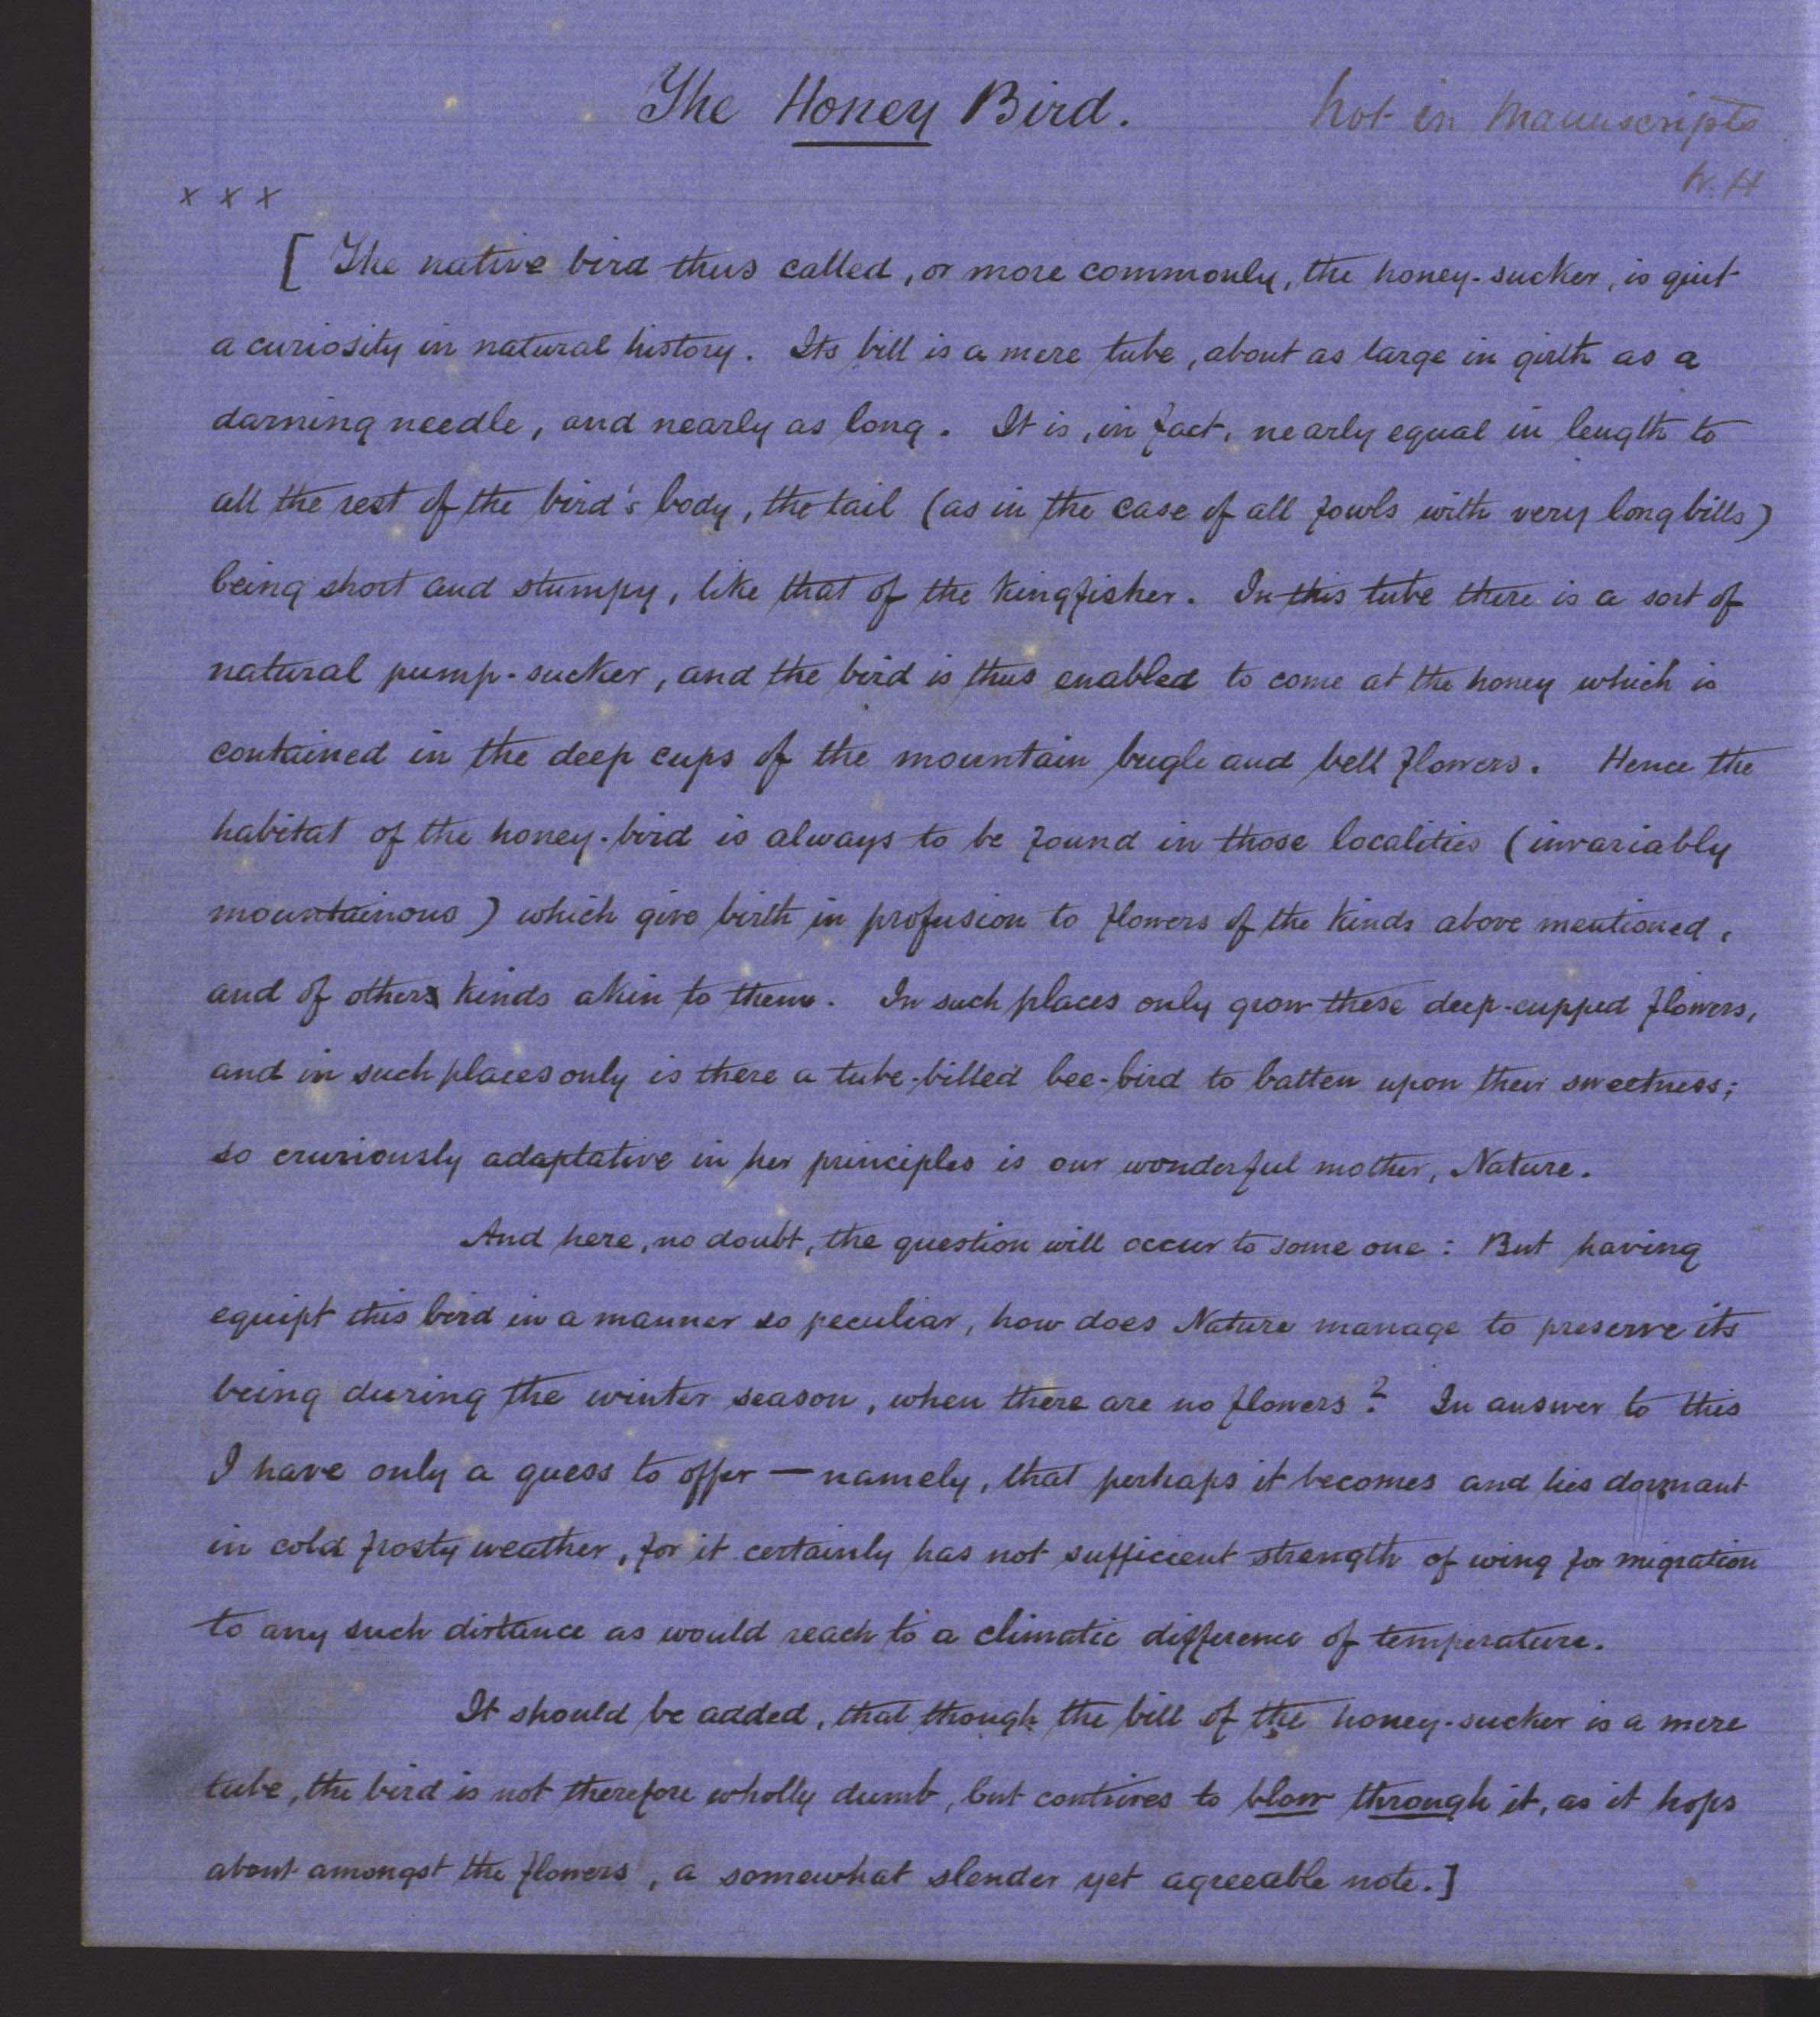 The Honey Bird.
not in Manuscripts
W. H
x x x
[ The native bird thus called, or more commonly, the honey-sucker, is quit
a curiosity in natural history. Its bill is a mere tube, about as large in girth as a
darning needle, and nearly as long. It is, in fact, nearly equal in length to
all the rest of the bird's body, the tail (as in the case of all fowls with very long bills)
being short and stumpy, like that of the kingfisher. In this tube there is a sort of
natural pump-sucker, and the bird is thus enabled to come at the honey which is
contained in the deep cups of the mountain bugle and bell flowers. Hence the
habitat of the honey-bird is always to be found in those localities (invariably
mountainous) which give birth in profusion to flowers of the kinds above mentioned,
and of other kinds akin to them. In such places only grow these deep-cupped flowers,
and in such places only is there a tube-billed bee-bird to batten upon their sweetness;
so cruriously adaptative in her principles is our wonderful mother, Nature.
And here, no doubt, the question will occur to some one: But having
equipt this bird in a manner so peculiar, how does Nature manage to preserve its
being during the winter season, when there are no flowers? In answer to this
I have only a guess to offer — namely, that perhaps it becomes and lies dormant
in cold frosty weather, for it certainly has not sufficient strength of wing for migration
to any such distance as would reach to a climatic difference of temperature.
It should be added, that though the bill of the honey-sucker is a mere
tube, the bird is not therefore wholly dumb, but contrives to blow through it, as it hops
about amongst the flowers, a somewhat slender yet agreeable note.]